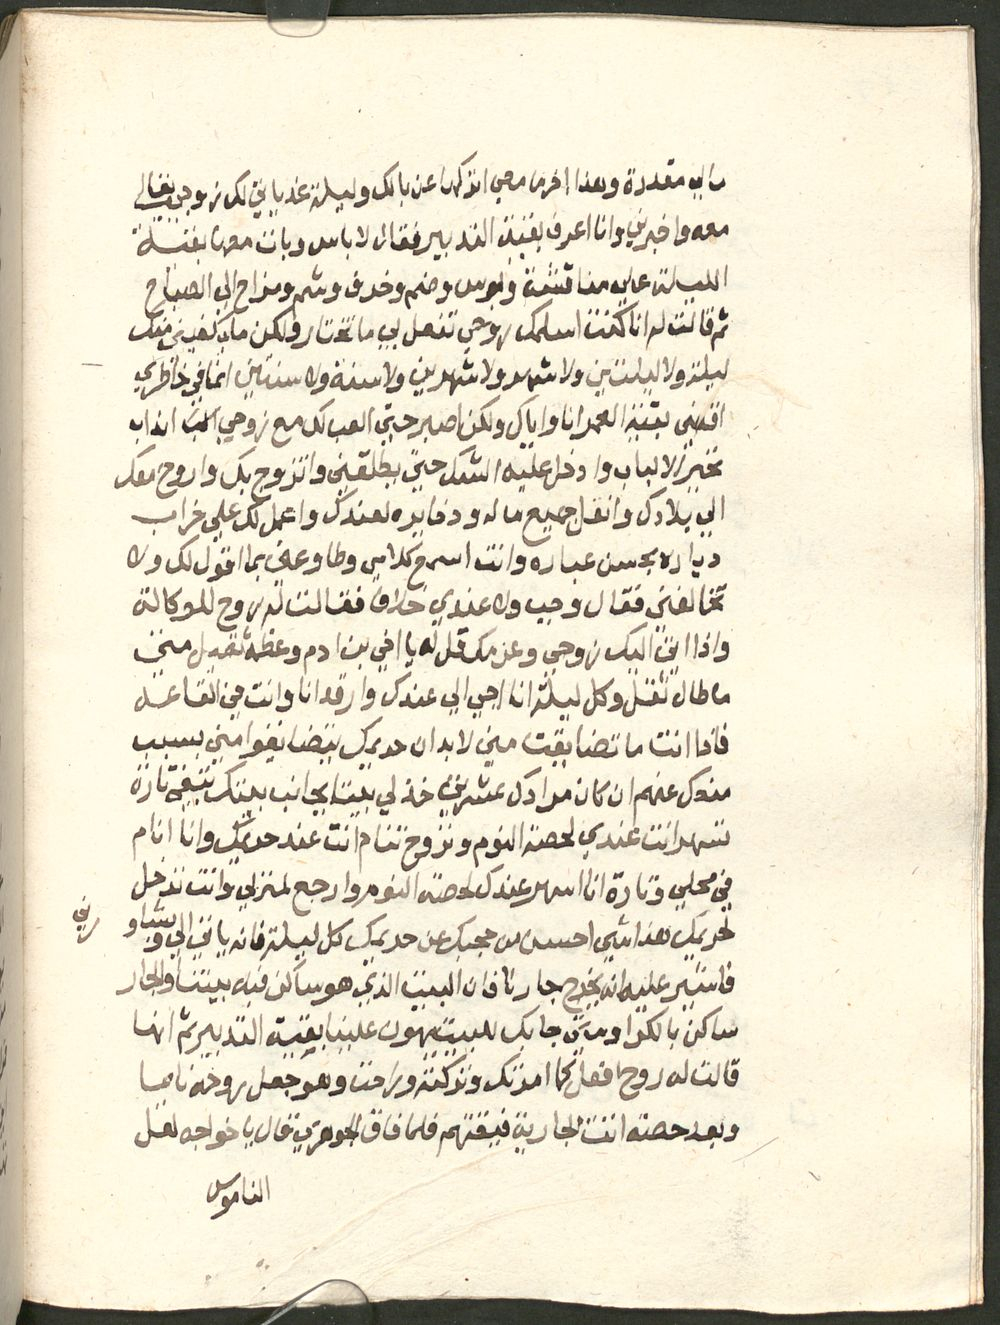 مالي مقدرة وهذا اخر ما معي اتركها عن بالك وليلة غد ياتي لك زوجي تعالى
معه واخبرني وانا اعرف بقية التدبير فقال لا باس وبات معها بقية
الليلة على مناقشة وبوس وضم وخدف وشم ومزاح الى الصباح
ثم قالت له انا كنت اسلمك روحي تفعل بي ما تختار ولكن ما يكفيني منك
ليلة ولا ليلتين ولا شهر ولا شهرين ولا سنة ولا سنتين انما في خاطري
اقضي بقية العمر انا واياك ولكن اصبر حتى العب لك مع زوجي العب اذاب
تحير الالباب وادخل عليه الشك حتى يطلقني واتزوج بك واروح معك
الى بلادك وانقل جميع ماله وذخايره لعندك واعمل لك على خراب
دياره بحسن عباره وانت اسمع كلامي وطاوعني بما اقول لك ولا
تخالفني فقال وجب ولا عندي خلاف فقالت له روح للوكالة
واذا اتى اليك زوجي وعزمك قل له يا اخي بن ادم وعظمة تقيل متى
ما طال تقل وكل ليلة انا اجي الى عندك وارقد انا وانت في القاعة
فاذا انت ما تضايقت مني لابد ان حريمك يتضايقوا مني بسبب
منعك عنهم ان كان مرادك عشرتي خذ لي بيت بجانب بيتك تبقى تارة
تسهر انت عندي لحصة النوم وتروح تنام انت عند حريمك وانا انام
في محلي وتارة انا اسهر عندك لحصة النوم وارجع لمنزلي وانت تدخل
لحريمك هذا شي احسن من حجبك عن حريمك كل ليلة فانه ياتي الي ويشاو
رني
فاشير عليه انه يخرج جارنا فان البيت الذي هو ساكن فيه بيتنا والجار
ساكن بالكرا ومتى جابك للبيت يهون علينا بقية التدبير ثم انها
قالت له روح افعل كما امرتك وتركته وراحت وهو جعل روحه نايما
وبعد حصة اتت الجارية فيقتهم فلما فاق الجوهري قال يا خواجه لعل
الناموس